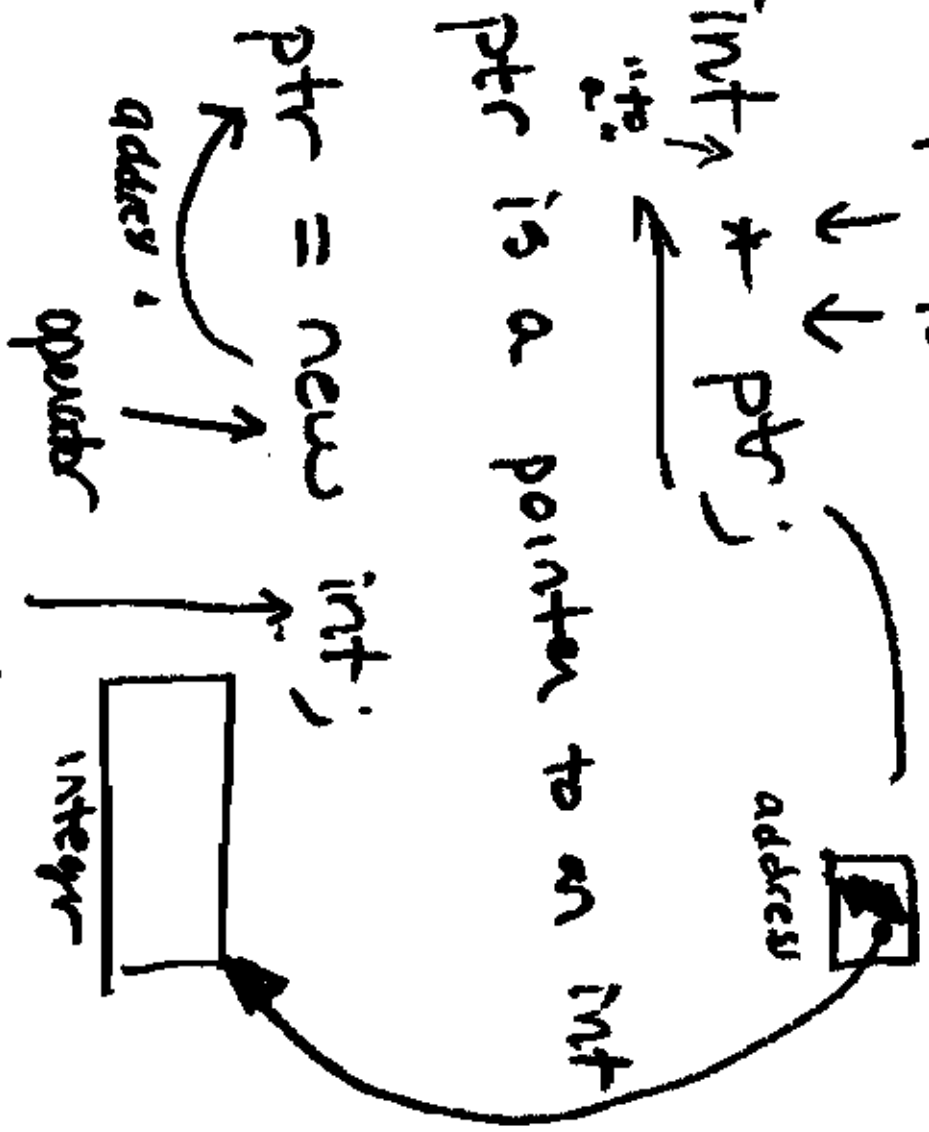 int * ptr;
address
ptr is a pointer to an int
ptr = new int;
address
operator
integer